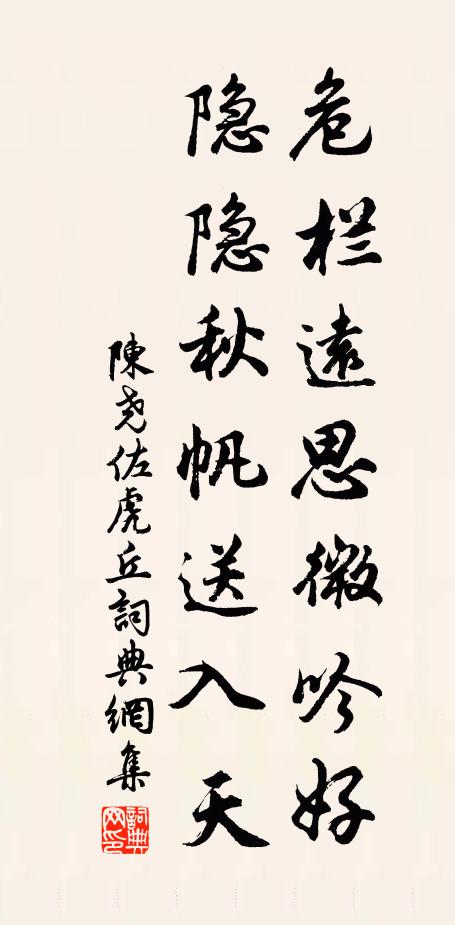 危栏遠思微吟好
隐隐秋帆送入天
陳尧佐虎丘詞典網集
詞典网印